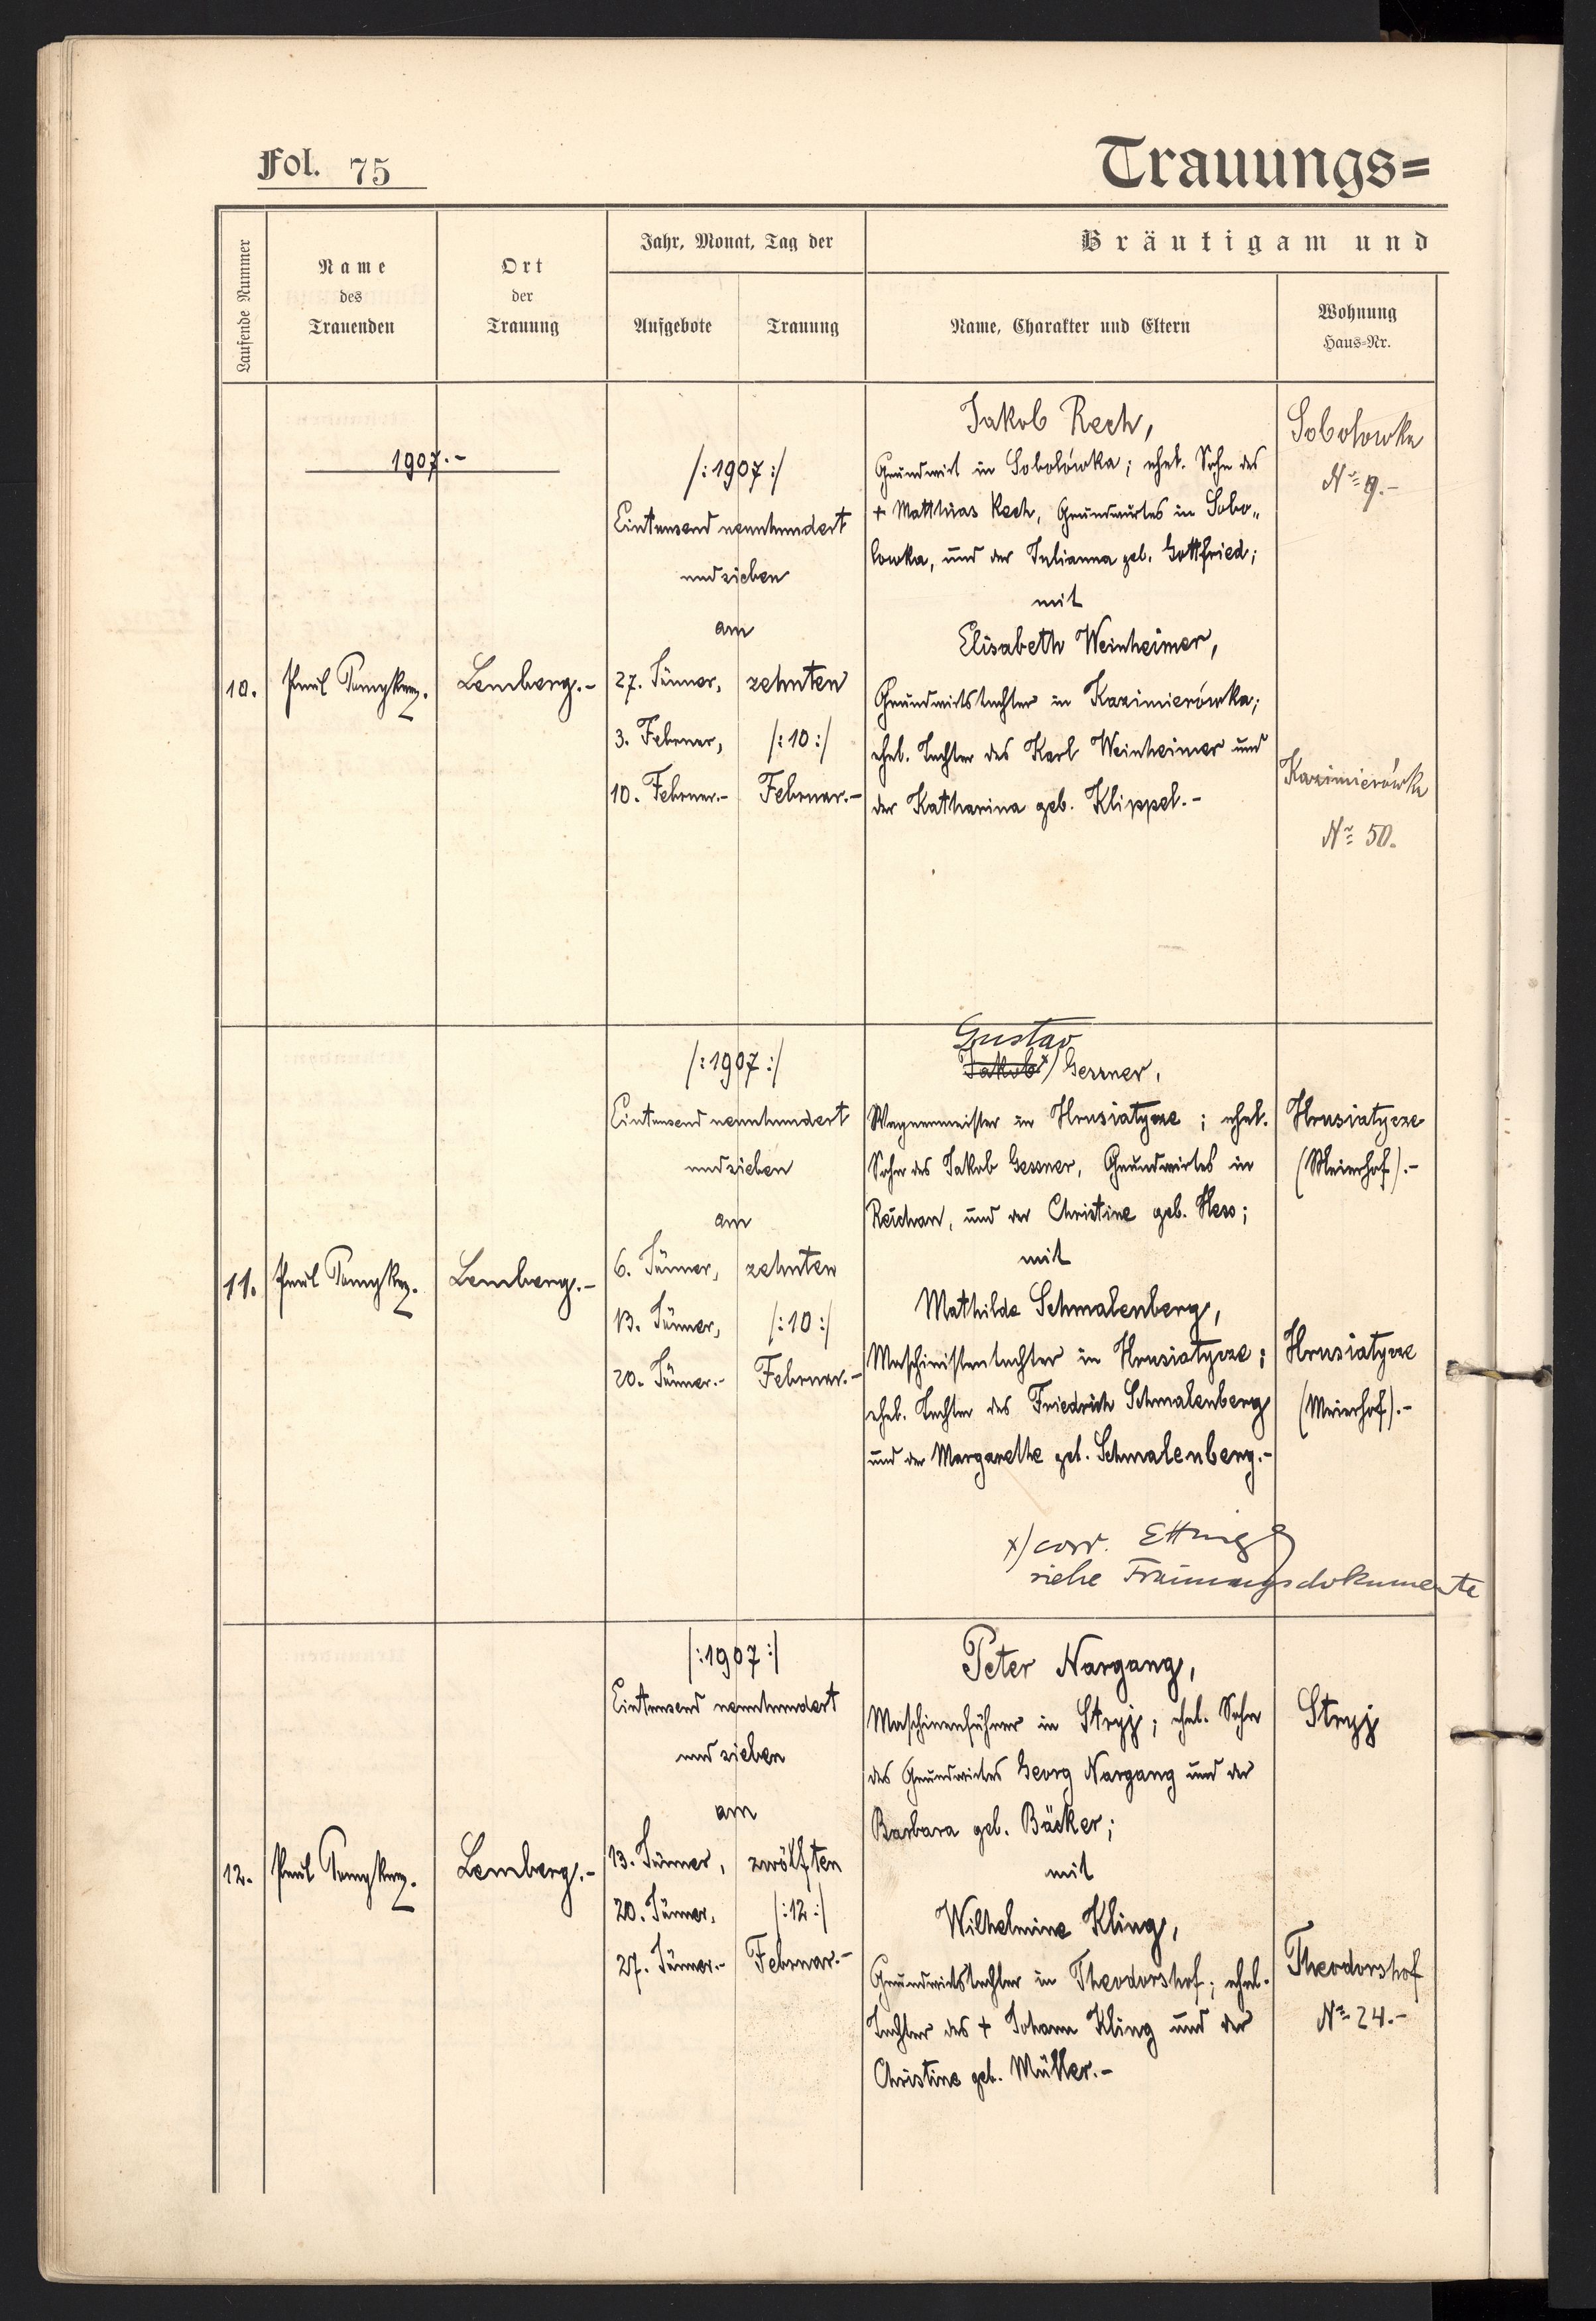 Fol. 75
Trauungs=
Laufende Nummer
Name
des
Trauenden
Ort
der
Trauung
Jahr, Monat, Tag der
Aufgebote
Trauung
Bräutigam und
Name, Charakter und Eltern
Wohnung
Haus-Nr.
1907.-
10.
Paul
Lemberg.-
/:1907:/
Eintausend neunhundert
und sieben
am
27. Jänner,
3. Februar,
10. Februar.-
zehnten
/:10:/
Februar.-
Jakob Rech,
Grundwirt in Sobolówka; ehel. Sohn des
+ Matthias Rech, Grundwirtes in Sobo„
lowka, und der Julianna geb. Gottfried;
mit
Elisabeth Weinheimer,
Grundwirtstochter in Kazimierówka;
ehel. Tochter des Karl Weinheimer und
der Katharina geb. Klippel.-
Sobolowka
Nr 9.-
Kazimierówka
Nr 50.
11.
Paul
Lemberg.-
/:1907:/
Eintausend neunhundert
und sieben
am
6. Jänner,
13. Jänner,
20. Jänner.-
zehnten
/:10:/
Februar.-
Gustav
Jakob x/ Gessner,
Wagenmeister in Hrusiatycze; ehel.
Sohn des Jakob Gessner, Grundwirtes in
Reichau, und der Christine geb. Hess;
mit
Mathilde Schmalenberg,
Maschinistentochter in Hrusiatycze;
ehel. Tochter des Friedrich Schmalenberg
und der Margarethe geb. Schmalenberg.-
x/ corr. Ettinger
siehe Trauungsdokumente
Hrusiatycze
(Meierhof).-
Hrusiatycze
(Meierhof).-
12.
Paul
Lemberg.-
/:1907:/
Eintausend neunhundert
und sieben
am
13. Jänner,
20. Jänner,
27. Jänner.-
zwölften
/:12:/
Februar.-
Peter Nargang,
Maschinenführer in Stryj; ehel. Sohn
des Grundwirtes Georg Nargang und der
Barbara geb. Bäcker;
mit
Wilhelmine Kling,
Grundwirtstochter in Theodorshof; ehel.
Tochter des + Johann Kling und der
Christine geb. Müller.-
Stryj
Theodorshof
Nr 24.-